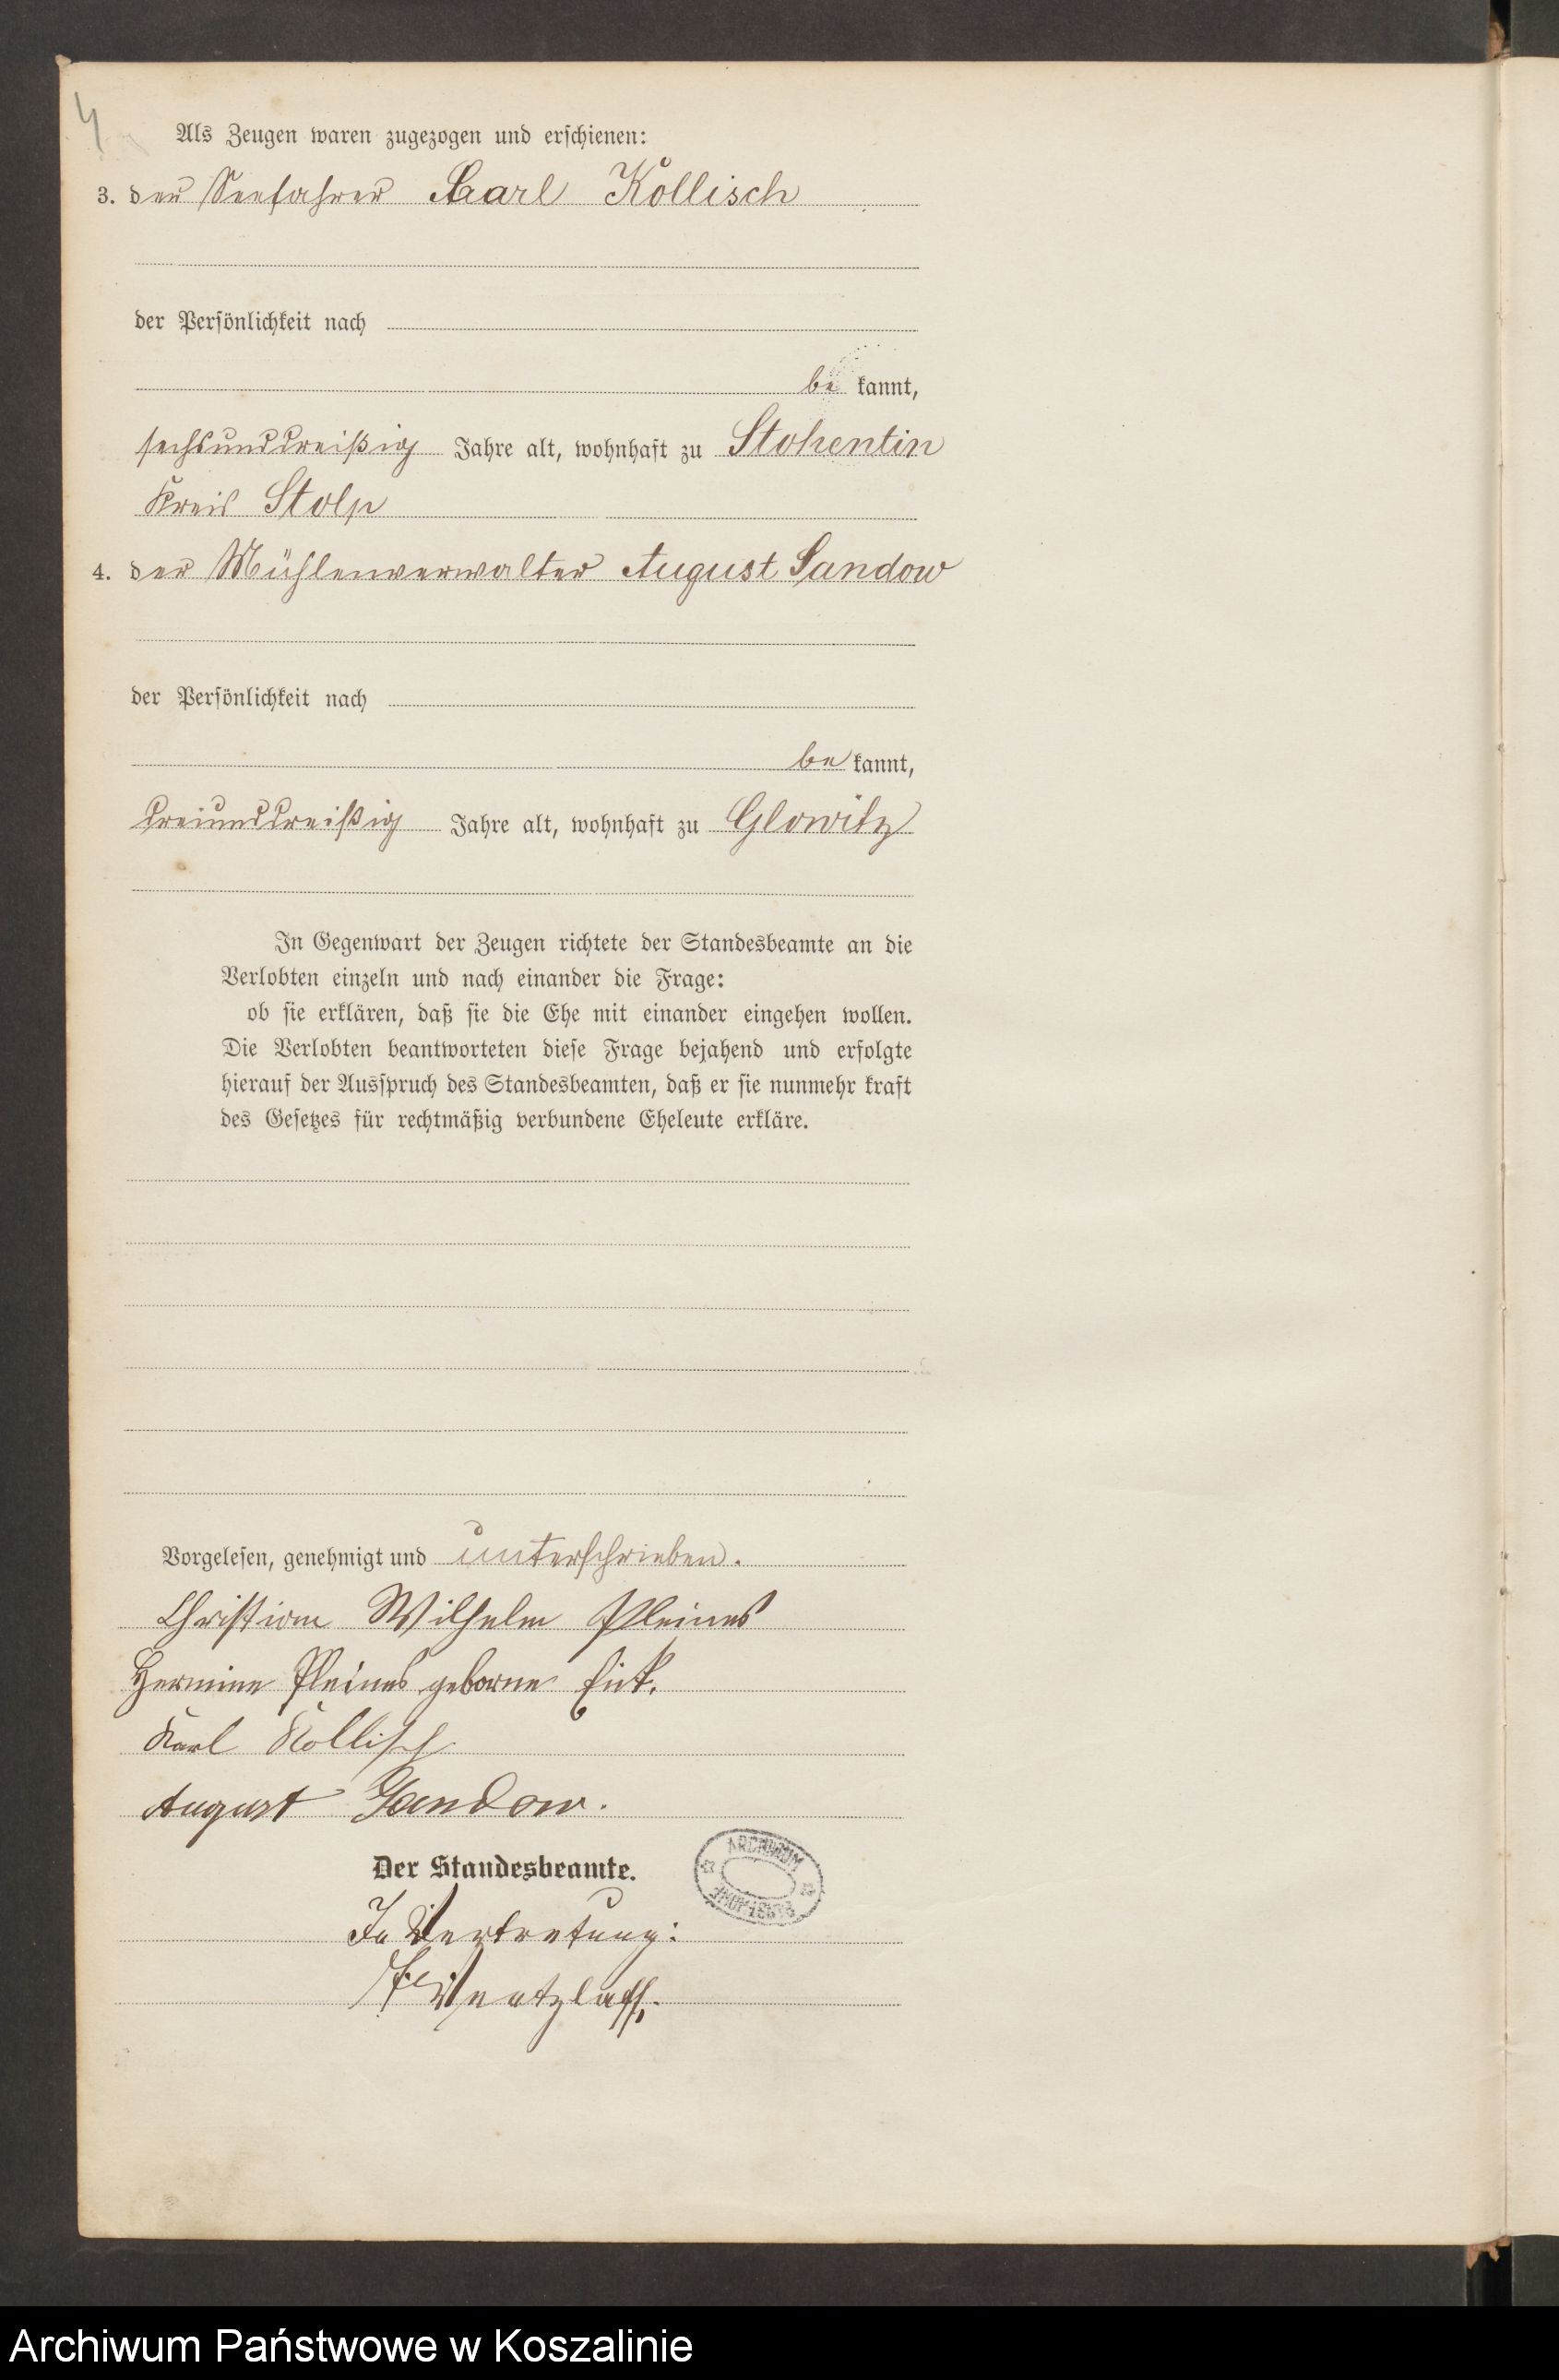 4
Als Zeugen waren zugezogen und erschienen:
3. der Seefahrer Karl Kollisch
der Persönlichkeit nach
be kannt,
sechsunddreißig Jahre alt, wohnhaft zu Stohentin
Kreis Stolp
4. der Mühlenverwalter August Sandow
der Persönlichkeit nach
be kannt,
dreiunddreißig Jahre alt, wohnhaft zu Glowitz
In Gegenwart der Zeugen richtete der Standesbeamte an die
Verlobten einzeln und nach einander die Frage:
ob sie erklären, daß sie die Ehe mit einander eingehen wollen.
Die Verlobten beantworteten diese Frage bejahend und erfolgte
hierauf der Ausspruch des Standesbeamten, daß er sie nunmehr kraft
des Gesetzes für rechtmäßig verbundene Eheleute erkläre.
Vorgelesen, genehmigt und unterschrieben.
Christian Wilhelm Pleines
Hermine Pleines geborne Fick.
Karl Kollisch
August Sandow.
Der Standesbeamte.
ARCHIWUM
In Vertretung:
Ventzlaff.
Archiwum Państwowe w Koszalinie